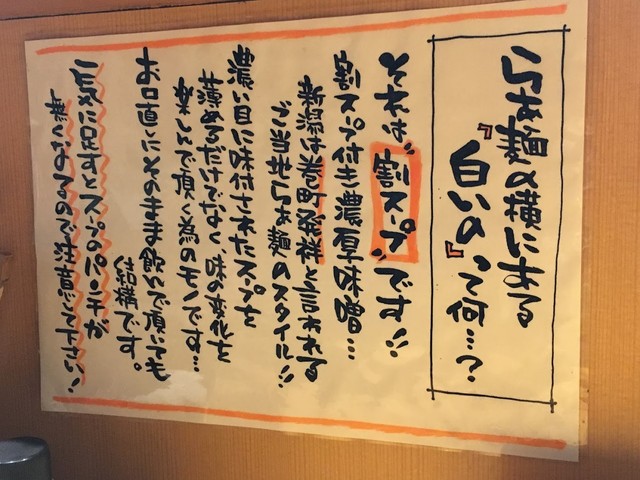 らぁ麺の横にある
『白いの』って何…?
それは"割スープ"です!!
割スープ付き濃厚味噌…
新潟は巻町発祥と言われる
ご当地らぁ麺のスタイル!!
濃い目に味付されたスープを
薄めるだけでなく味の変化を
楽しんで頂く為のモノです…
お口直しにそのまま飲いで頂いても
結構です。
一気に足すとスープのパンチが
無くなるので注意して下さい!